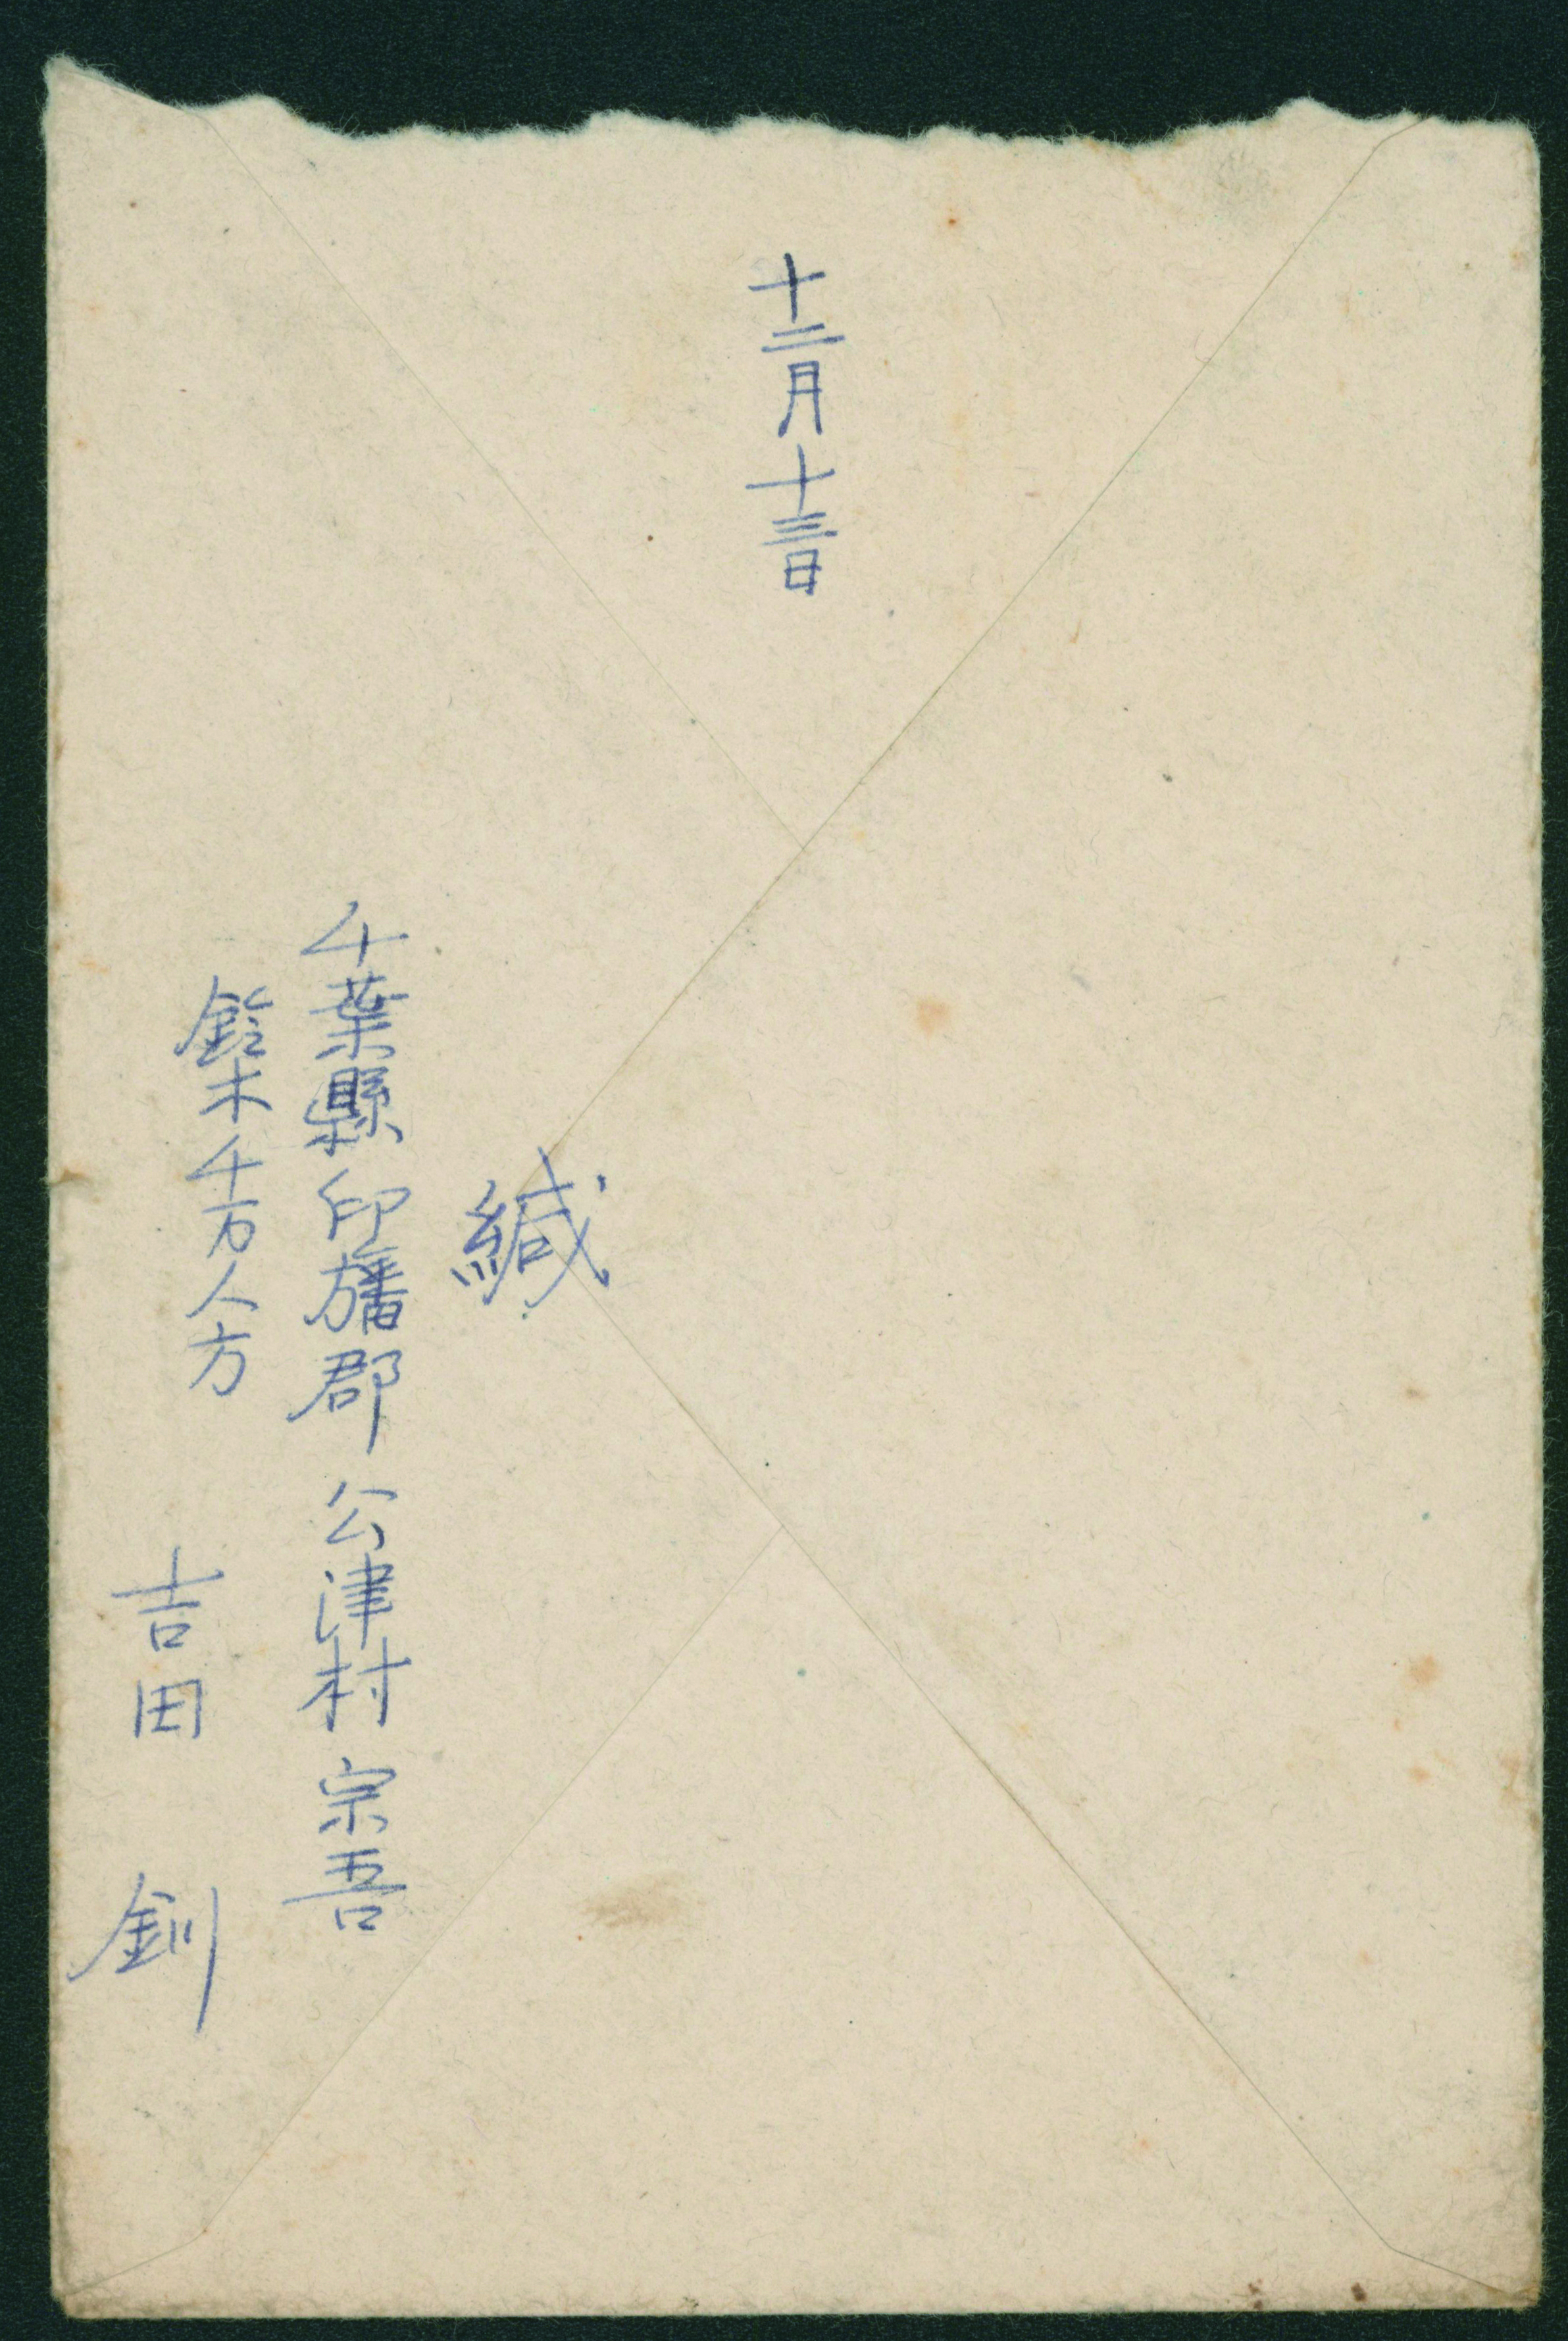 十二月十三日
緘
千葉縣印旛郡公津村宗吾
鈴木千万人方
吉田釧